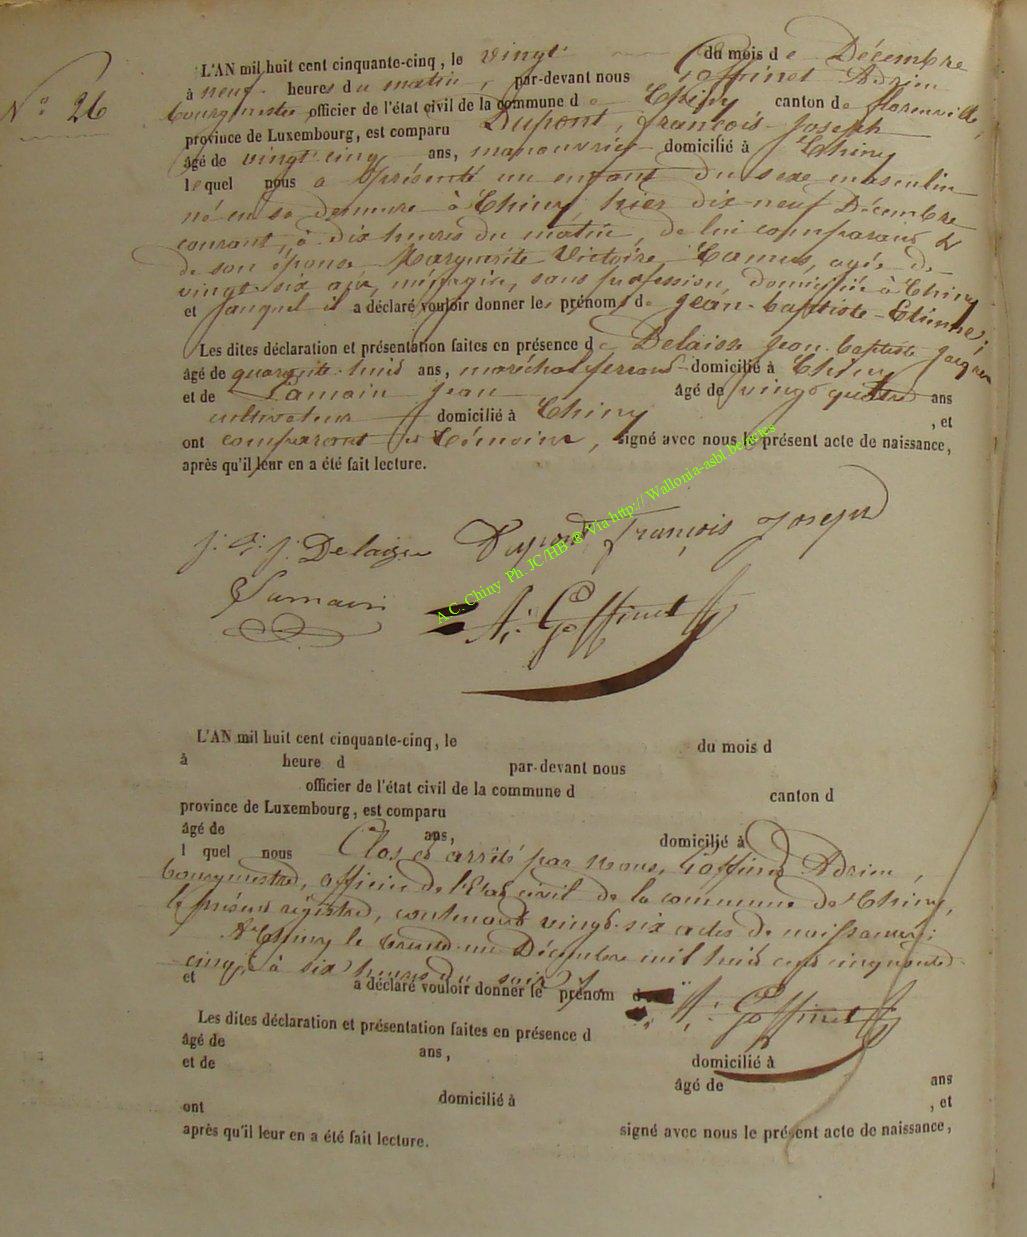 N° 26
L'AN mil huit cent cinquante-cinq, le vingt du mois de Décembre
à neuf heures du matin, par-devant nous Goffinet Adrien
bourgmestre officier de l'état civil de la commune de Chiny canton de Florenville,
province de Luxembourg, est comparu Dupont, françois-Joseph
âgé de vingt cinq ans, manouvrier domicilié à Chiny
lequel nous a présenté un enfant du sexe masculin
né en sa demeure à Chiny, hier dix-neuf Décembre
courant, à dix heures du matin, de lui comparant &
de son épouse Marguerite Victoire Camus, agée de
vingt six ans, ménagère, sans profession, domiciliée à Chiny
et auquel il a déclaré vouloir donner les prénoms de Jean-baptiste-Etienne;
Les dites déclaration et présentation faites en présence de Delaisse Jean-baptiste Jacques
âgé de quarante-huit ans, maréchal ferrant domicilié à Chiny
et de Lamain Jean âgé de vingt quatre ans
cultivateur domicilié à Chiny , et
ont comparant et témoins, signé avec nous le présent acte de naissance,
après qu'il leur en a été fait lecture.
Delaisse Dupont François Joseph
A. Goffinet
A.C. Chiny Ph. JC/HB & Via http:// Wallonia-asbl.be/etes
L'AN mil huit cent cinquante-cinq, le du mois d
à heure d par-devant nous
officier de l'état civil de la commune d canton d
province de Luxembourg, est comparu
âgé de ans, domicilié à
l quel nous Clos et arrêté par Nous, Goffinet Adrien,
bourgmestre, officier de l'Etat civil de la commune de Chiny,
le présent régistre, contenant vingt-six actes de naissances;
A Chiny le trente-un Décembre mil huit cent cinquante
cinq, à six heures du soir
et a déclaré vouloir donner le prénom d A. Goffinet
Les dites déclaration et présentation faites en présence d
âgé de ans, domicilié à
et de âgé de ans
domicilié à , et
ont signé avec nous le présent acte de naissance,
après qu'il leur en a été fait lecture.